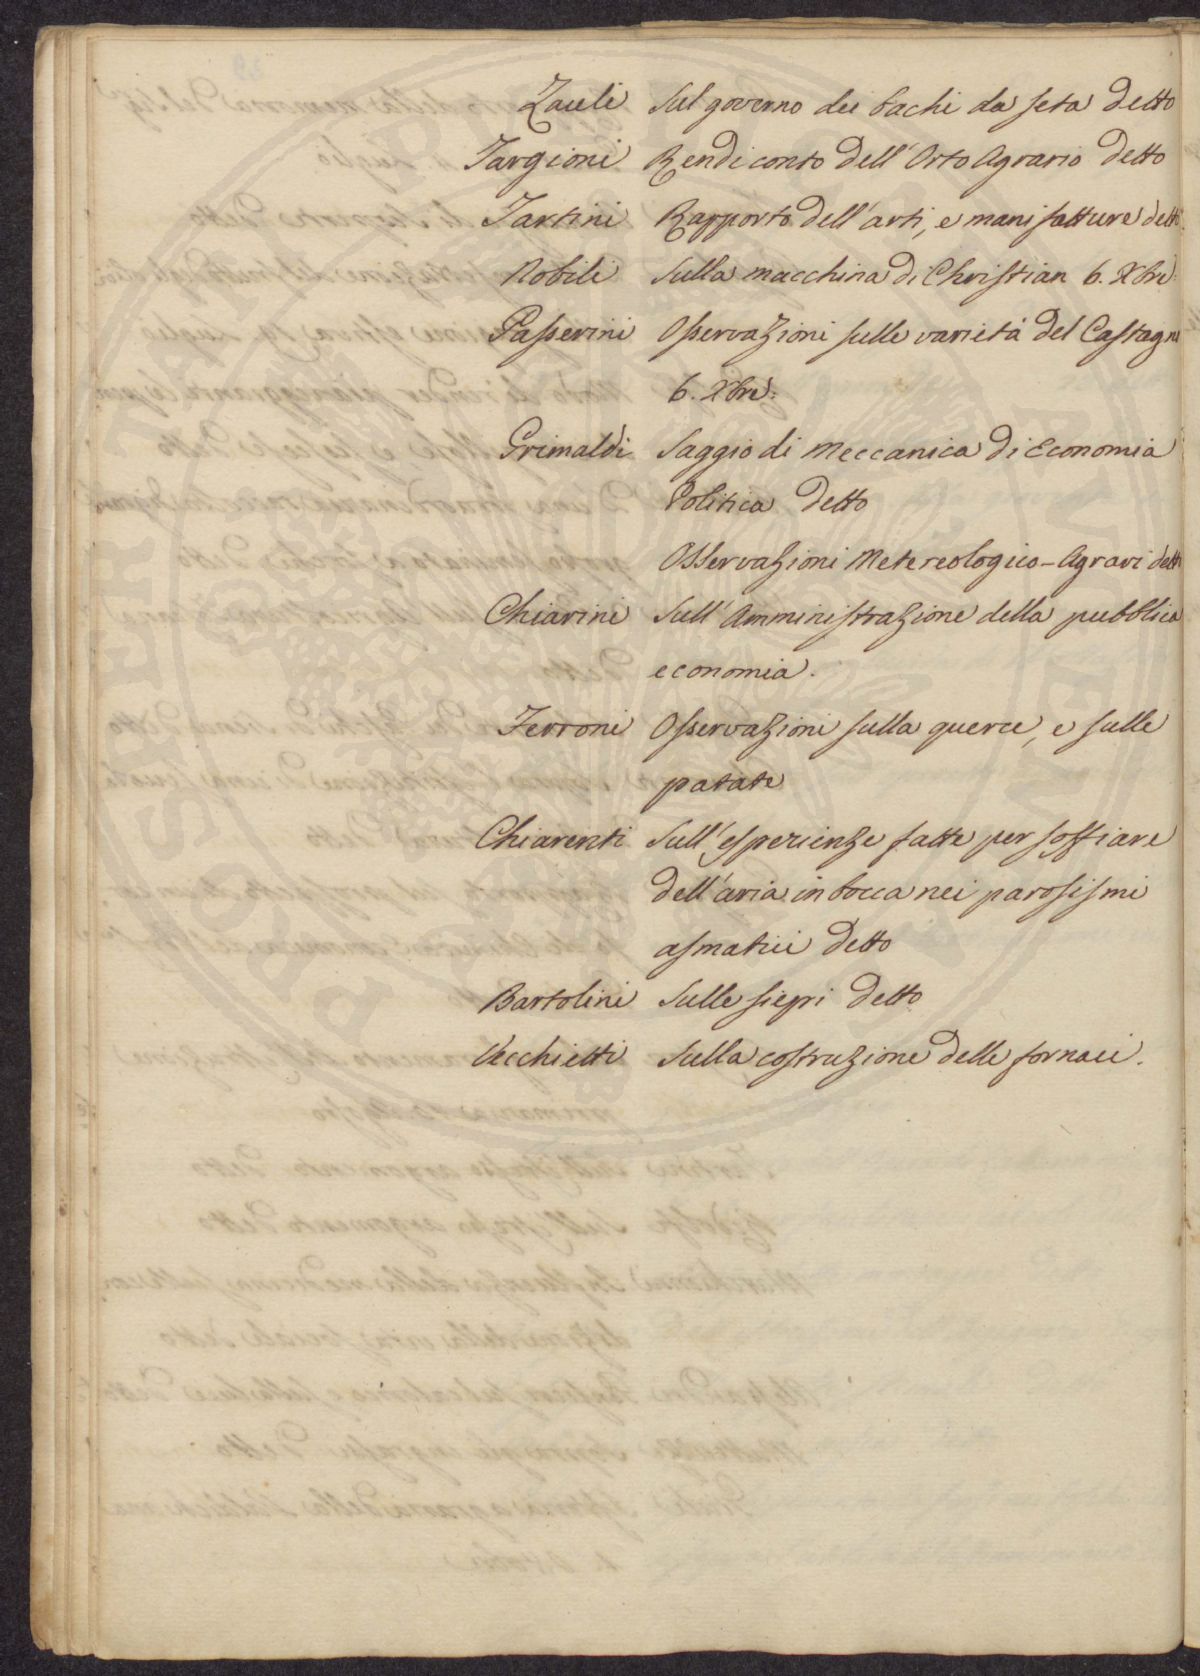 Zauli Sul governo dei bachi da seta detto
Targioni Rendiconto dell'Orto Agrario detto
Tartini Rapporto dell'arti, e manifatture detto
Nobili Sulla macchina di Christian 6. Xbre
Passerini Osservazioni sulle varietà del Castagno
6. Xbre.
Grimaldi Saggio di Meccanica di Economia
Politica detto
Osservazioni Metereologico-Agrari detto
Chiarini Sull'Amministrazione della pubblica
economia.
Ferroni Osservazioni sulla querce, e sulle
patate
Chiarenti Sull'esperienze fatte per soffiare
dell'aria in bocca nei parosismi
asmatici detto
Bartolini Sulle siepi detto
Vecchietti Sulla costruzione delle fornaci.